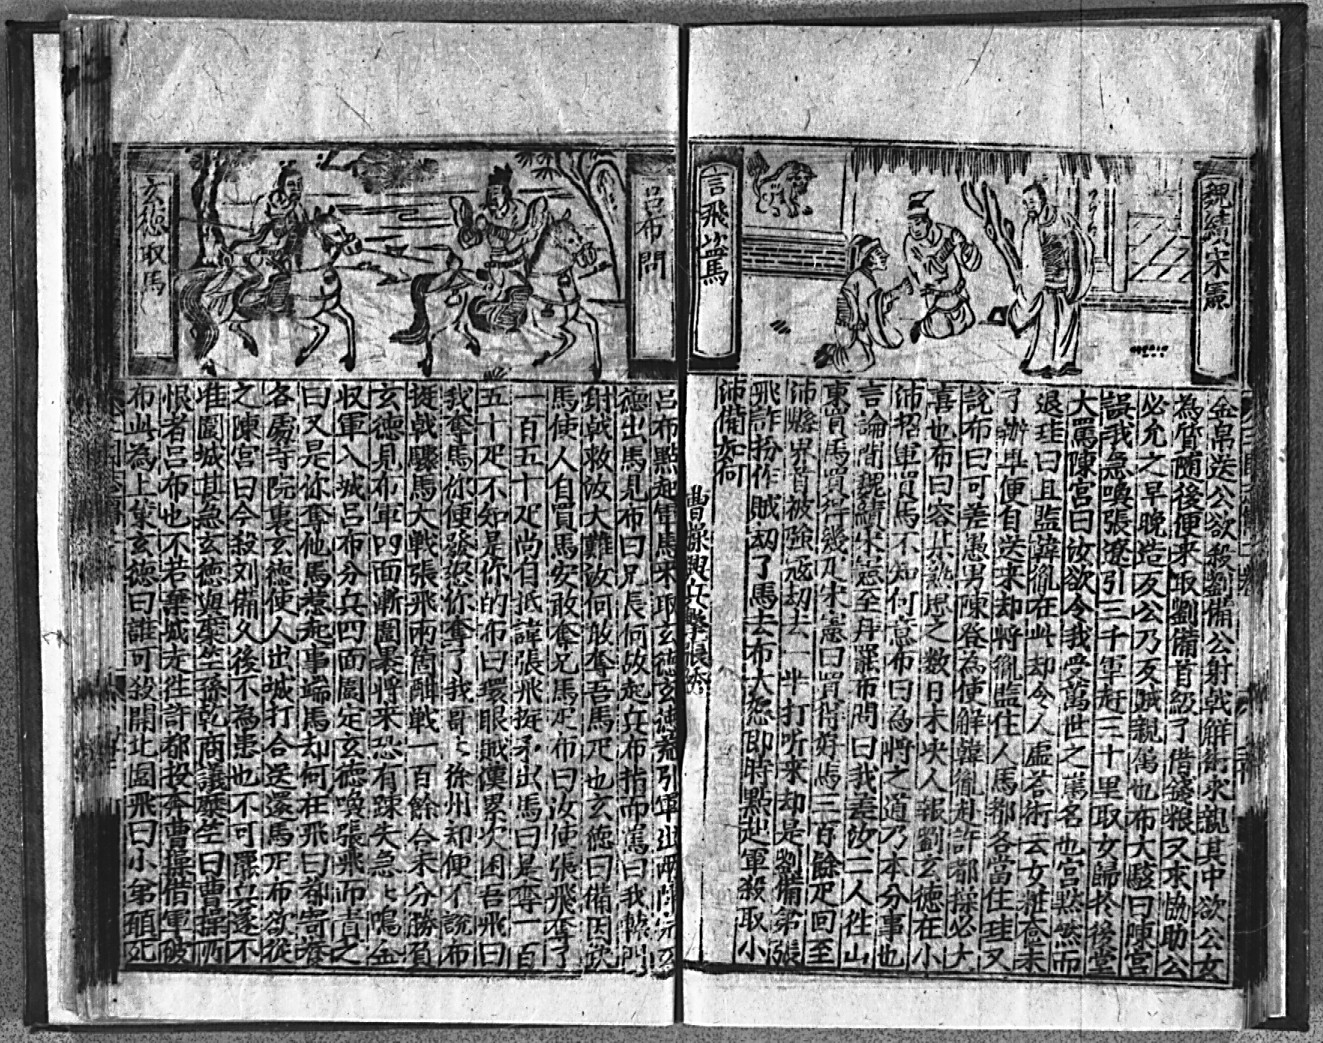 魏續宋憲
言飛盜馬
金帛送公欲殺劉備公射戟解術求親其中欲公女
為質随後便来取劉備首級了借錢粮又來協助公
必允之早晚造反公乃反賊親属也布大驚曰陳宮
誤我急喚張遼引三千軍赶三十里取女歸扵後堂
大罵陳宮曰汝欲令我受萬世之罵名也宮默然而
退珪曰且監韓胤在此却令人虛荅術云女粧奩未
了辦畢便自送来却将胤監住人馬都各當住珪又
說布曰可差愚男陳登為使解韓胤赴許都操必大
喜也布曰容某熟思之数日未决人報劉玄德在小
沛招軍買馬不知何意布曰為将之道乃本分事也
言論間魏續宋憲至拜罷布問曰我差汝二人往山
東買馬買得幾疋宋憲曰買得好馬三百餘疋回至
沛縣界首被強冦刼去一半打听来却是劉備弟張
飛詐扮作賊刼了馬去布大怒即時點起軍殺取小
沛備如何
曹操興兵擊張綉
呂布問
玄德取馬
呂布點起軍馬来取玄德玄德
德出馬見布曰兄長何故起兵布指而罵曰我轅門
射戟救汝大難汝何敢奪吾馬疋也玄德曰備因
馬使人自買馬安敢奪兄馬疋布曰汝使張飛奪了
一百五十疋尚自抵諱張飛挺矛出馬曰是奪一百
五十疋不知是你的布曰環眼賊僕累次困吾飛曰
我奪馬你便發怒你奪了我哥〻徐州却便不說布
挺戟驟馬大戰張飛兩箇酣戰一百餘合未分勝負
玄德見布軍四面漸圍暴將来恐有踈失急〻鳴金
収軍入城呂布分兵四面圍定玄德喚張飛而責之
曰又是你奪他馬惹起事端馬却何在飛曰都寄
各處寺院裏玄德使人出城打合送還馬疋布欲從
之陳宮曰今殺刘備久後不為患也不可罷兵遂不
准圍城甚急玄德與糜竺孫乾商議糜竺曰曹操所
恨者呂布也不若棄城走往許都投奔曹操借軍破
布此為上策玄德曰誰可殺開此圍飛曰小弟願死